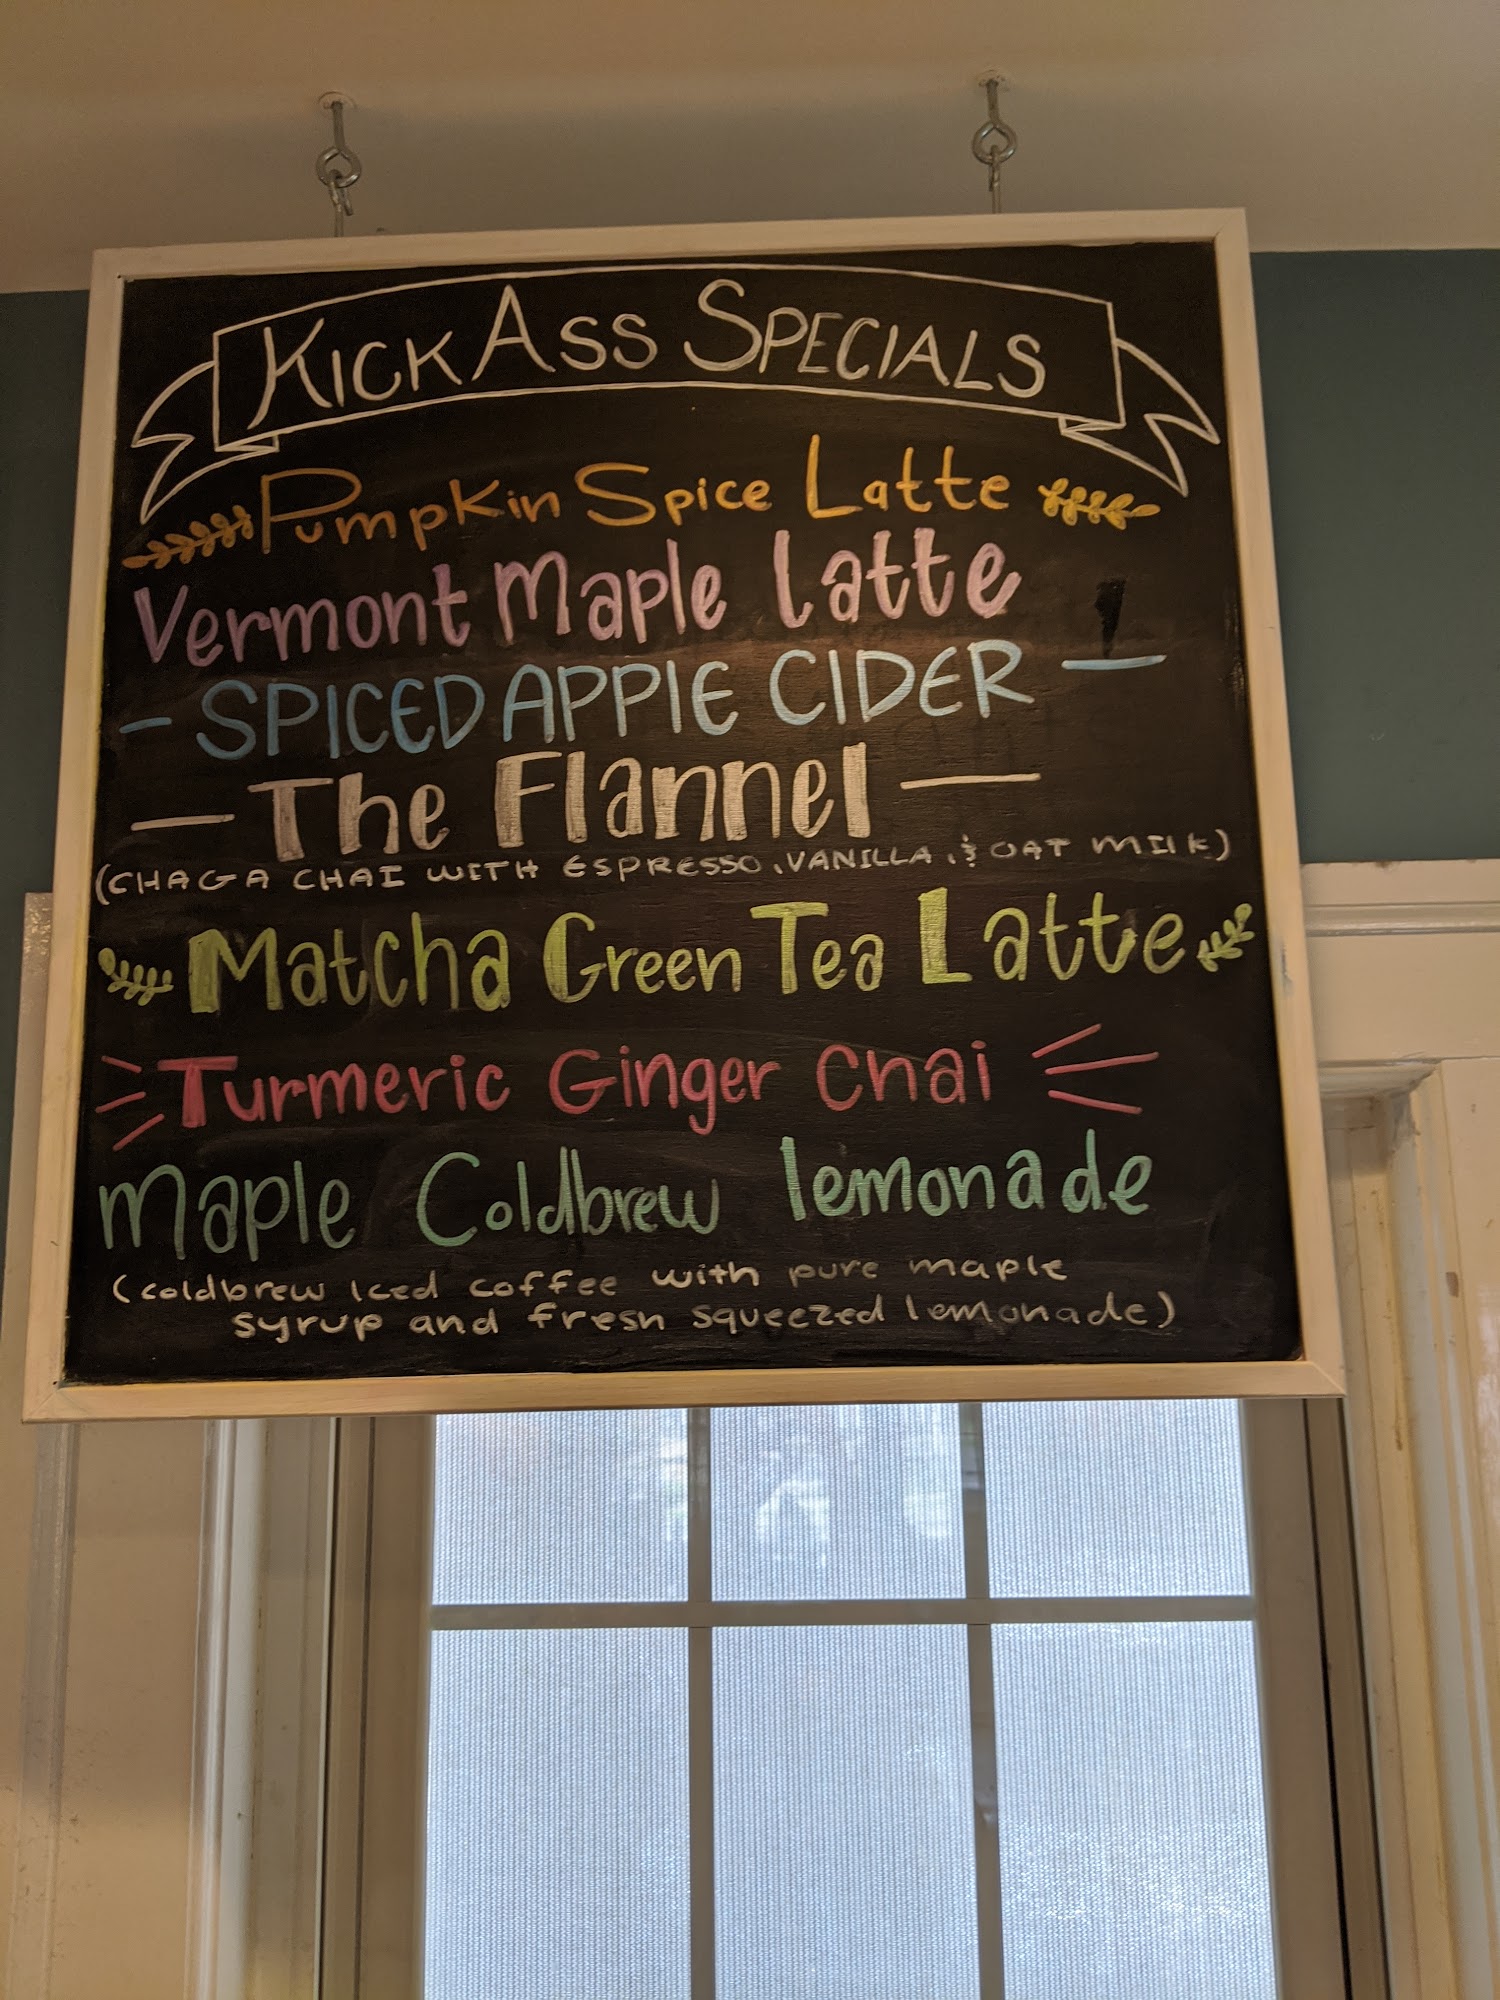 KICK ASS SPECIALS
Pumpkin Spice Latte
Vermont Maple Latte
- SPICED APPLE CIDER -
- The Flannel -
(CHAGA CHAI WITH ESPRESSO, VANILLA, & OAT MILK)
Matcha Green Tea Latte
Turmeric Ginger Chai
Maple Coldbrew lemonade
(coldbrew Iced coffee with pure maple
syrup and fresh squeezed lemonade)